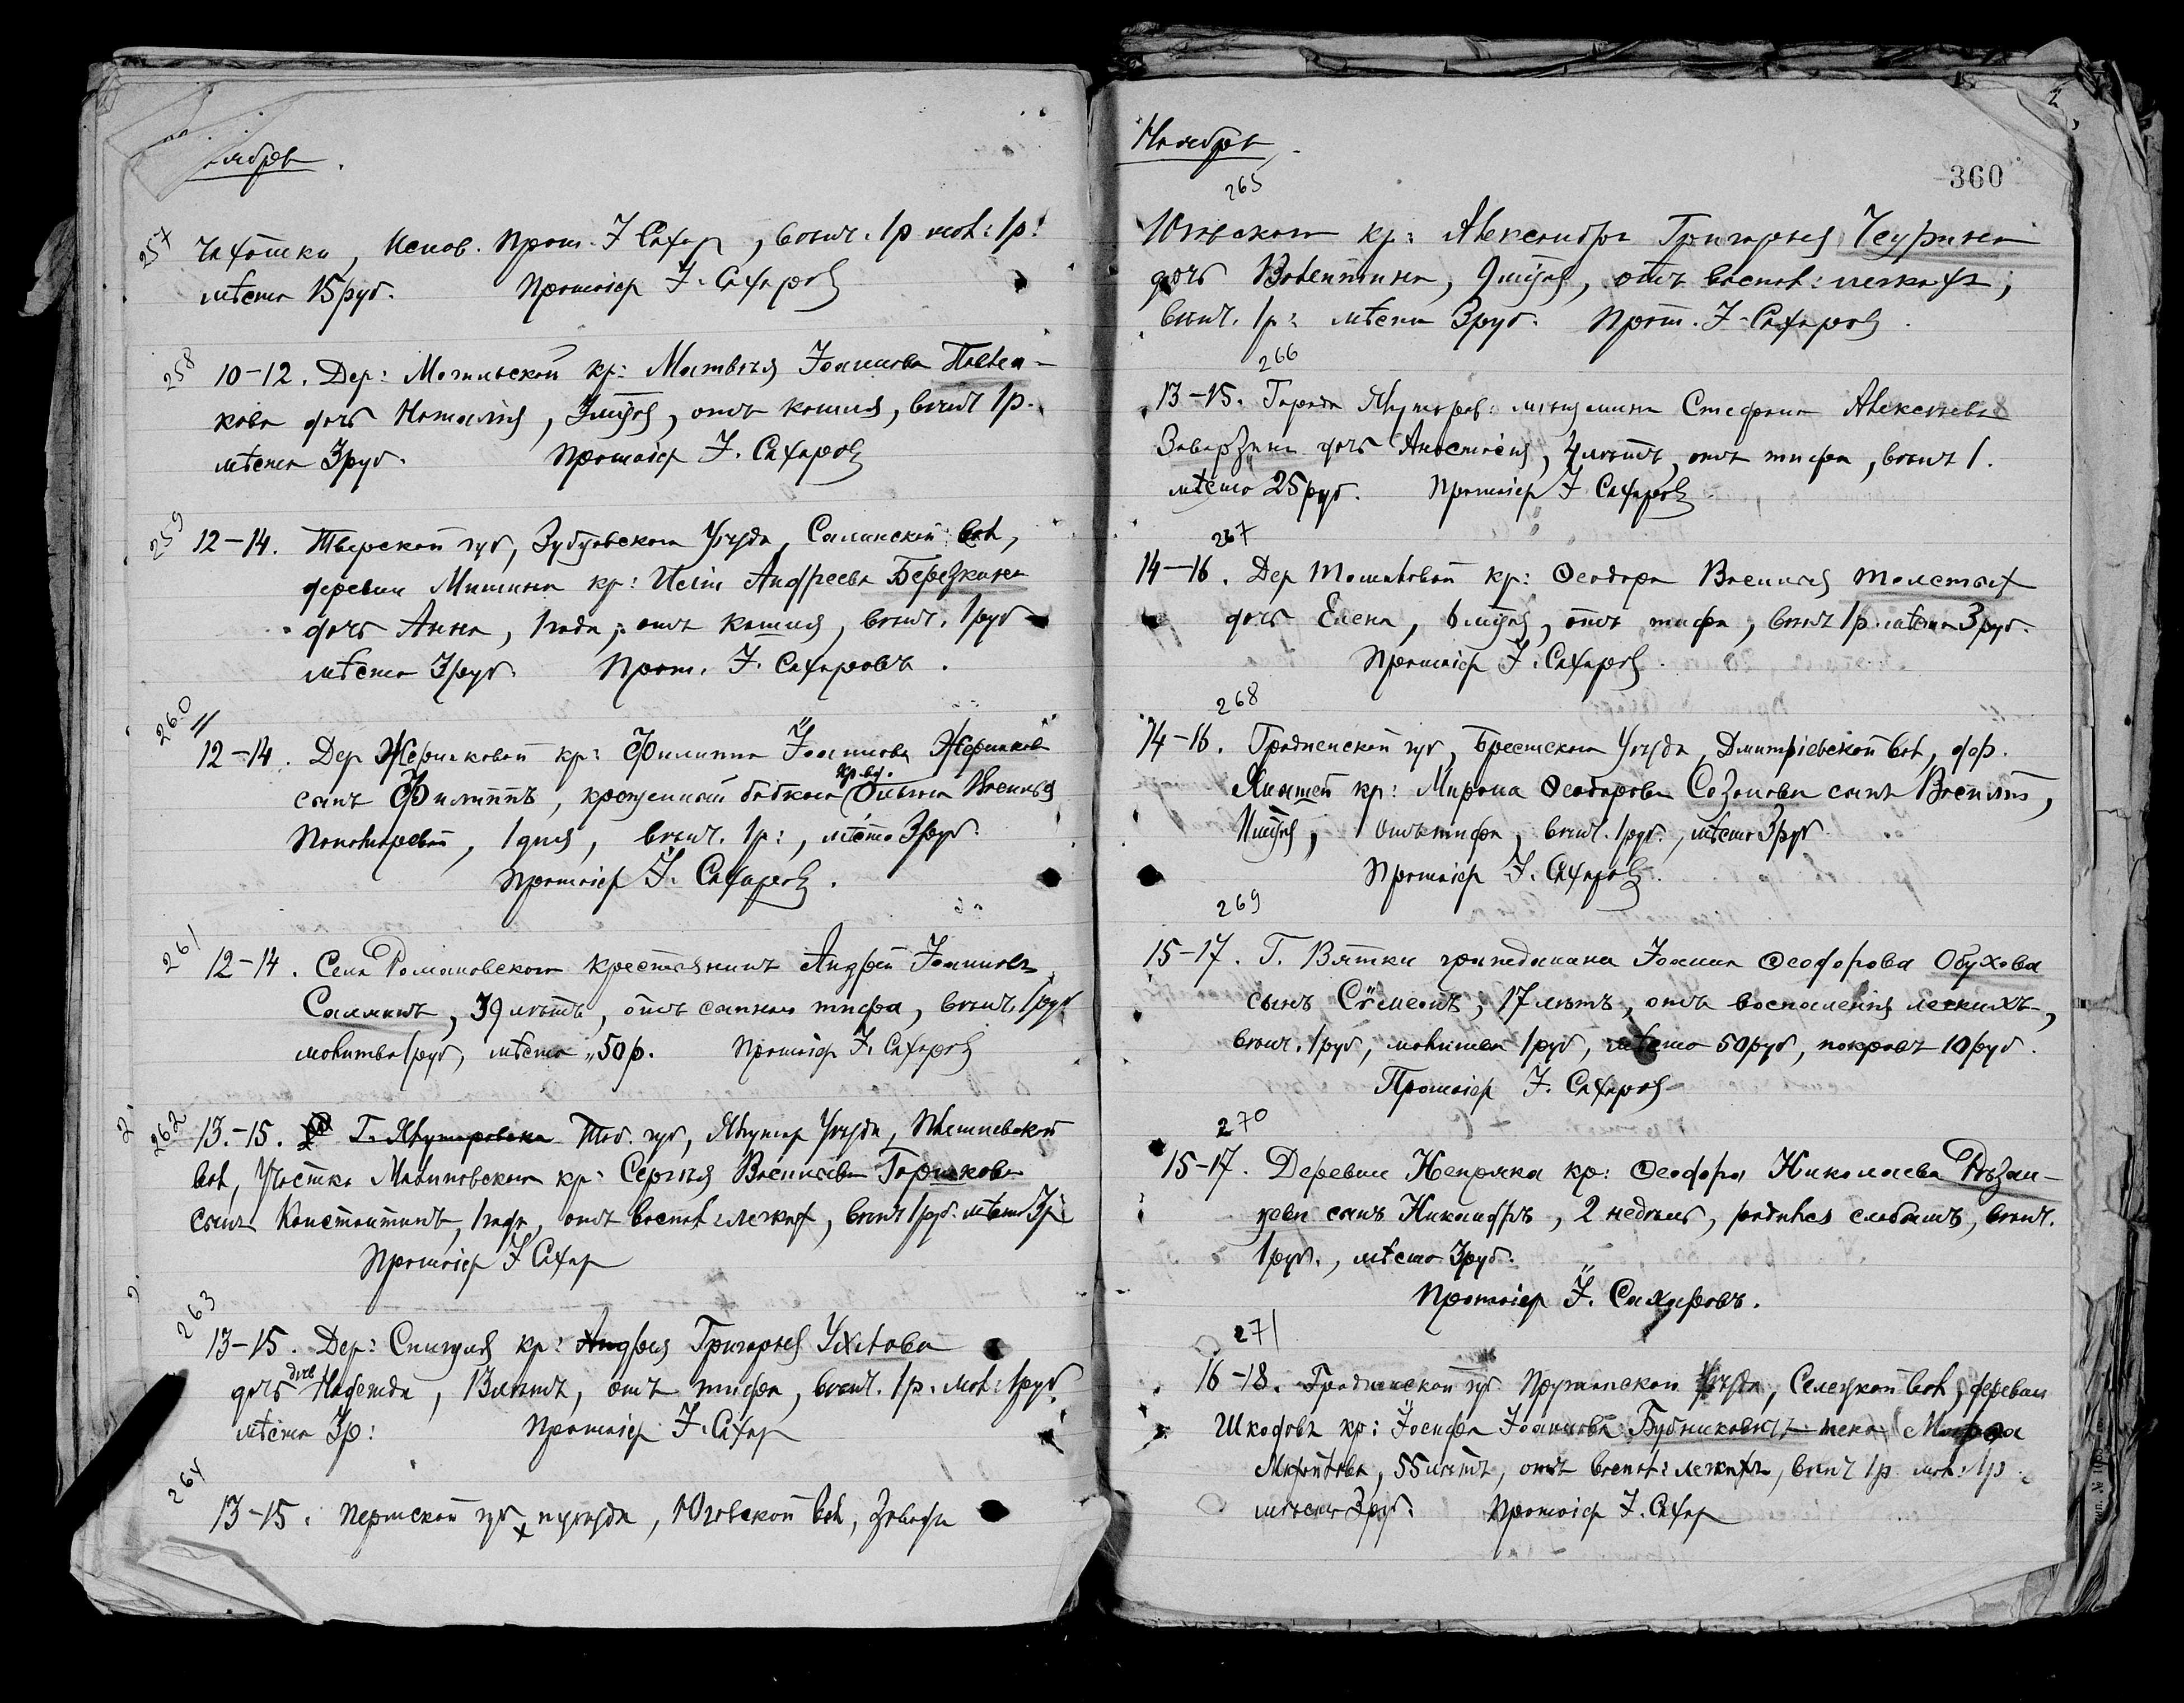 ябрь
257
Чахотки, Испов. Прот. І Сахар, вынч. 1р мол: 1р:
мѣсто 15 руб. Протоіер І. Сахаровъ
258
10-12. Дер: Могильской кр: Матвѣя Іоаннова
кова дочь Наталія, 3 мцѣв, отъ кашля, вынч 1р.
мѣсто 3 руб. Протоіер І. Сахаровъ
259
12-14. Тверской губ, Зубцовскаго Уѣзда, Салинской вол,
деревни Мишина кр: Исаіи Андреева Березкина
дочь Анна, 1 года, отъ кашля, вынч. 1 руб
мѣсто 3 руб. Прот. І. Сахаровъ.
260
12-14. Дер Жерняковой кр: Филиппа Іоаннова Жерняков
сынъ Филиппъ, крещенный бабкою Василія
Пономаревой, 1 дня, вынч. 1р:, мѣсто 3 руб.
Протоіер І. Сахаровъ.
261
12-14. Села Романовскаго крестьянинъ Андрей Іоанновъ
Салминъ, 39 лѣтъ, отъ сыпного тифа, вынч. 1 руб
молитва 1 руб, мѣсто 50 р. Протоіер І. Сахаровъ
2.
262
13.-15. Г. Ялуторовска Тоб. губ, Ялутор Уѣзда, Плетневской
вол, Участка Мавиновскаго кр: Сергѣя Васильева Горшкова
сынъ Константинъ, 1 года, отъ воспал: легких, вынч 1 руб. мѣсто 3р
Протоіер І Сахар
263
13-15. Дер: Снигуля кр: Андрея Григорьев Ухалова
дочь двв Надежда, 13 лѣтъ, отъ тифа, вынч. 1р. мол: 1 руб.
мѣсто 3р: Протоіер І. Сахар
264
13-15. Пермской губ и уѣзда, Юговской вол, Завода
Ноябрь
360
265
Юговского кр: Александра Григорьев Чеурина
дочь Валентина, 9 мцѣв, отъ воспал: легкихъ,
вынч. 1р: мѣсто 3 руб. Прот. І. Сахаровъ.
266
13-15. Города Ялуторов: мѣщанина Стефана Алексѣева
Заварзина дочь Анастасія, 4 лѣтъ, отъ тифа, вынч 1.
мѣсто 25 руб. Протоіер І Сахаровъ
267
14-16. Дер Томиловой кр: Ѳеодора Василья Толстых
дочь Елена, 6 мцѣв, отъ тифа, вынч 1р. мѣсто 3 руб.
Протоіер І. Сахаровъ.
268
14-16. Гродненской губ, Брестскаго Уѣзда, Дмитріевской вол, дер.
кр: Мирона Ѳеодорова Созонова сынъ Василій,
11 мцѣв, отъ тифа, вынч. 1 руб., мѣсто 3 руб
Протоіер І. Сахаровъ.
269
15-17. Г. Вятки гражданина Іоанна Ѳеодорова Обухова
сынъ Сѵмеонъ, 17 лѣтъ, отъ воспаленія легкихъ,
вынч. 1 руб, молитва 1 руб, мѣсто 50 руб, покровъ 10 руб.
Протоіер І. Сахаровъ
270
15-17. Деревни Непряка кр: Ѳеодора Николаева Рѣзан-
цева сынъ Никандръ, 2 недѣль, родился слабымъ, вынч.
1 руб., мѣсто 3 руб.
Протоіер І. Сахаровъ.
271
16-18. Гродненской губ Пружанскаго Уѣзда, Селецкой вол, деревни
Шкодовъ кр: Іосифа Іоаннова Будниковичъ жена
55 лѣтъ, отъ воспал: легкихъ, вынч 1р мол: 1р
мѣсто 3 руб. Протоіер І. Сахар